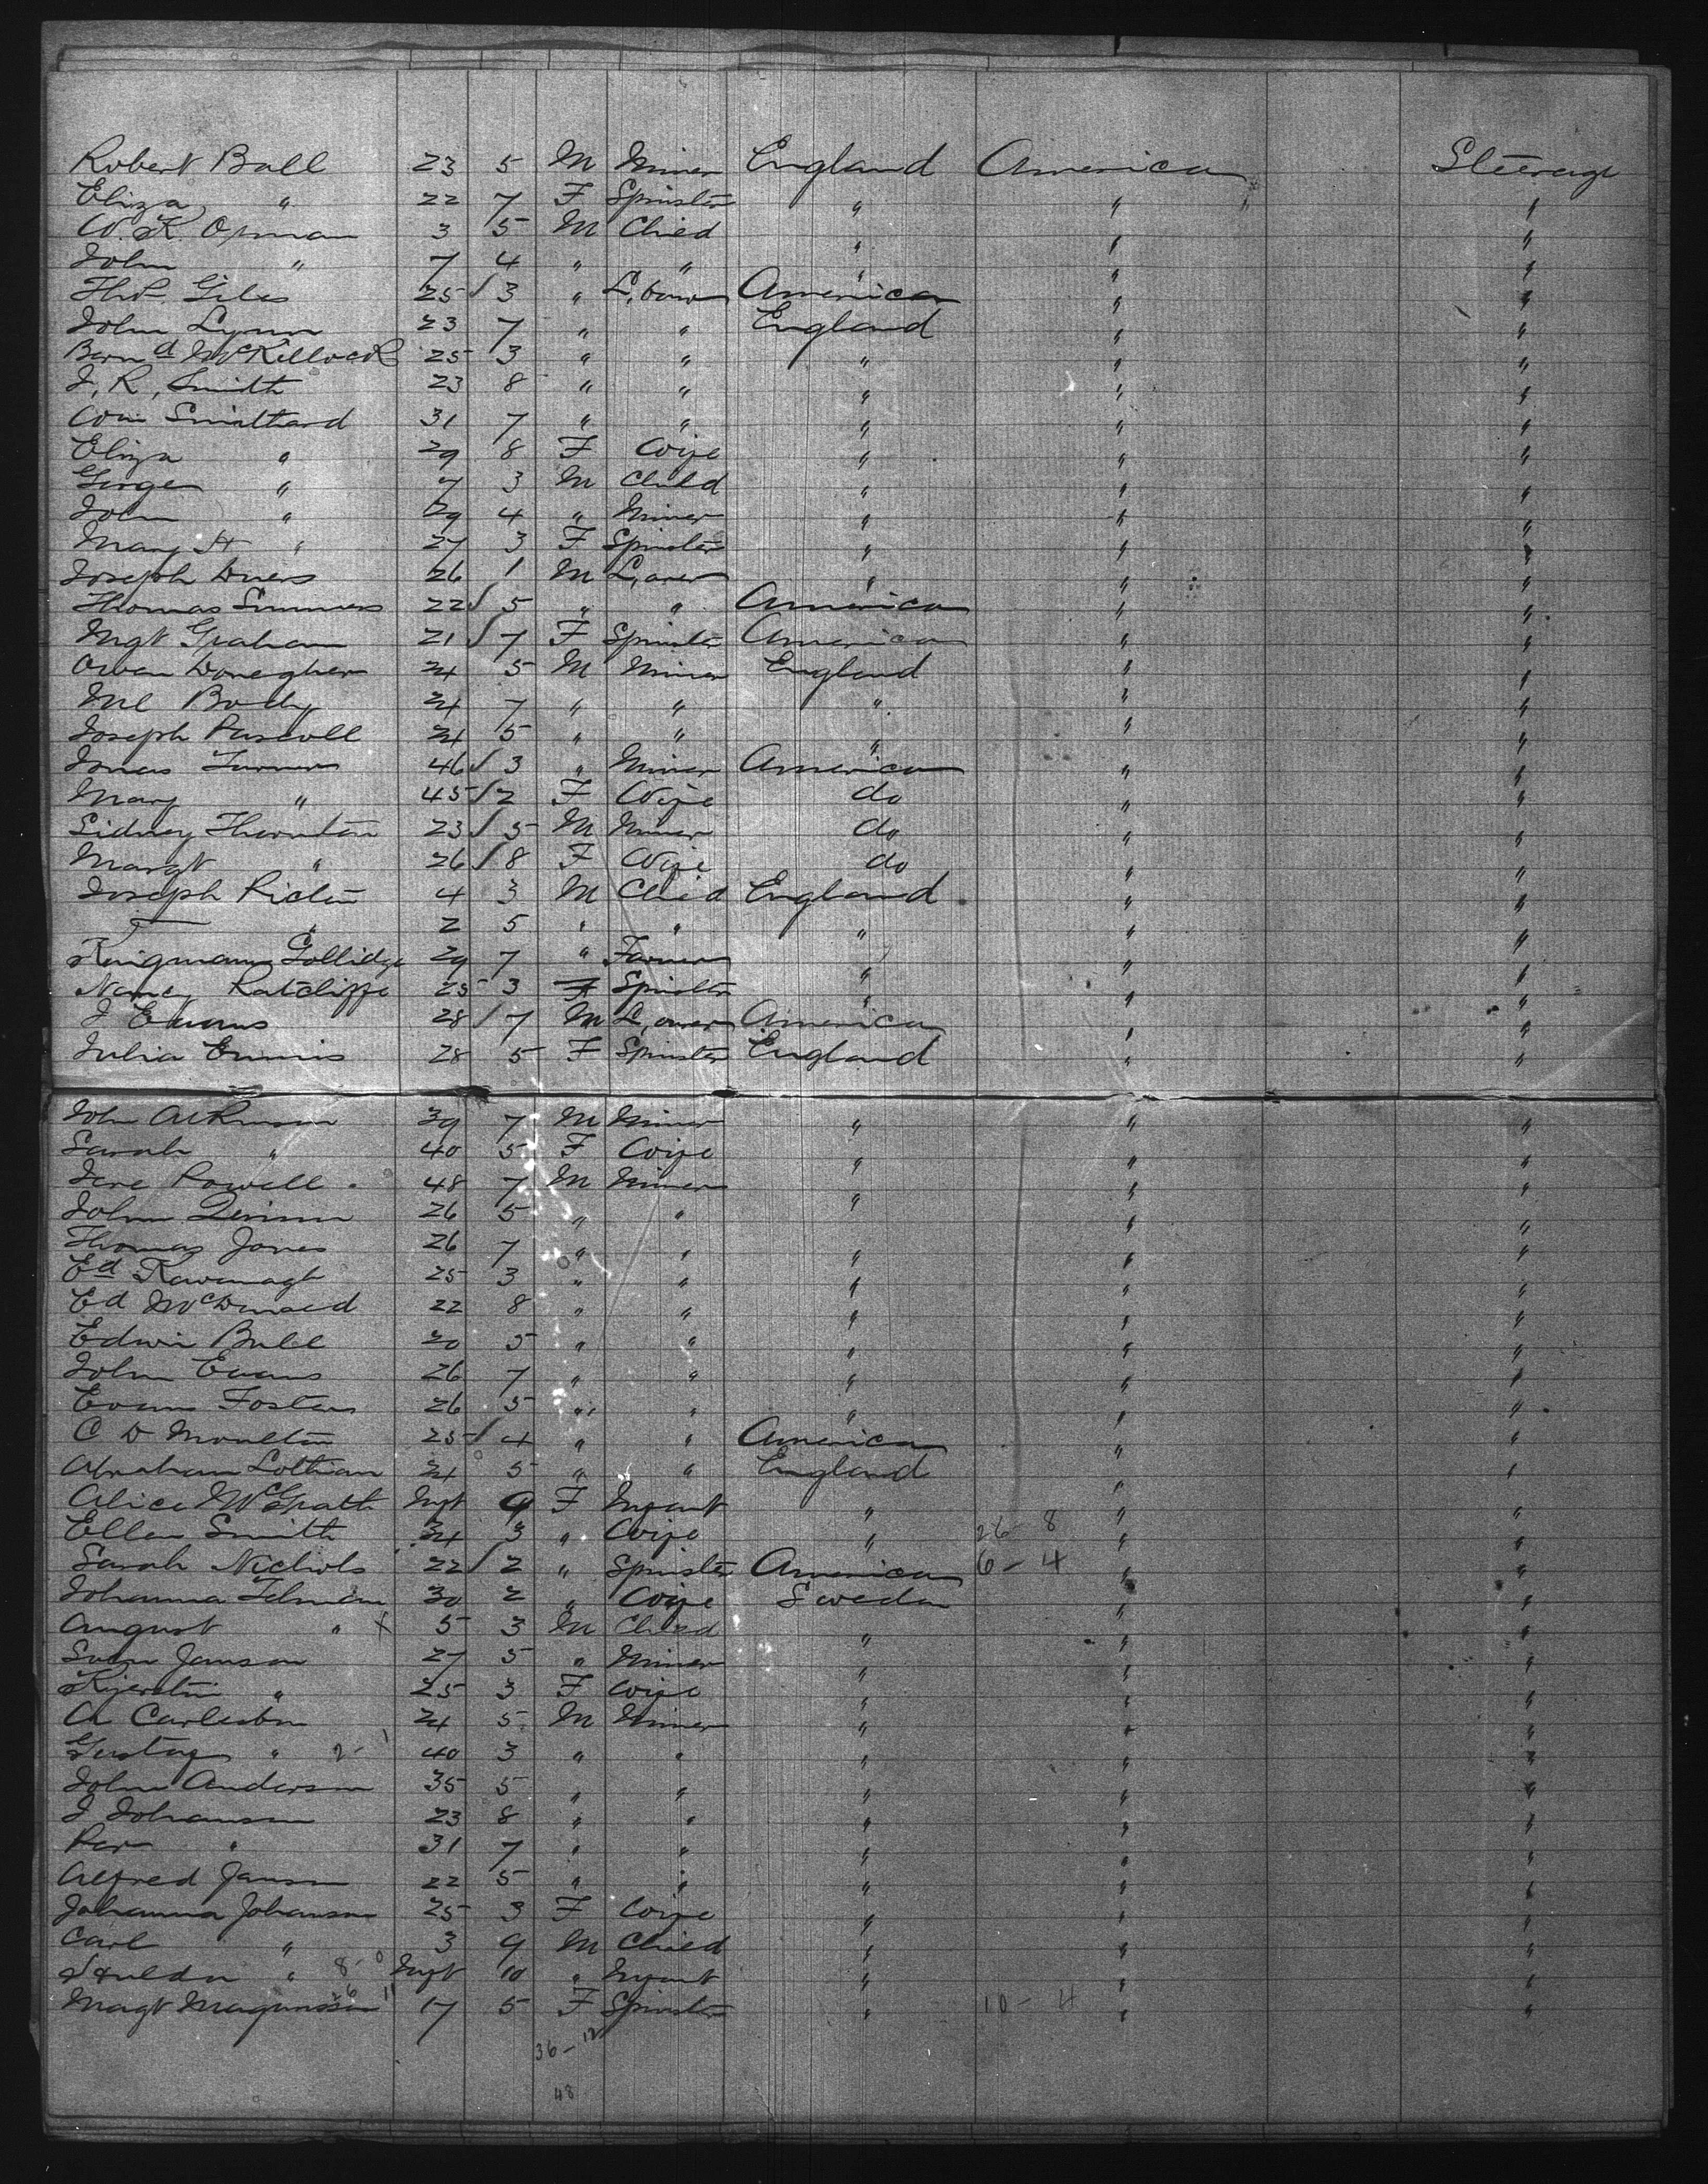 Robert Ball 23 5 M Miner England America Steerage
Eliza " 22 7 F Spinster " " "
W. K. Opman 3 5 M Child " " "
John " 7 4 " " " " "
Giles 25 √ 3 " America " "
John Lynn 23 7 " " England " "
Bern d McKillock 25 3 " " " " "
J, R, Smith 23 8 " " " " "
Wm Smithard 31 7 " " " " "
Eliza " 29 8 F Wife " " "
George " 7 3 M Child " " "
John " 29 4 " Miner " " "
Mary H " 27 3 F Spinster " " "
Joseph 26 1 M " " "
Thomas Simmers 22 √ 5 " " America " "
Mgt Graham 21 √ 7 F Spinster America " "
Owen Doneghen 24 5 M Miner England " "
Ml 24 7 " " " " "
Joseph 24 5 " " " " "
Turner 46 √ 3 " Miner America " "
Mary " 45 √ 2 F Wife do " "
Sidney Thornton 23 √ 5 M Miner do " "
Margt " 26 √ 8 F Wife do " "
Joseph 4 3 M Child England " "
" 2 5 " " " " "
Kingman Gollidge 29 7 " Farmer " " "
Nancy Ratcliffe 25 3 F Spinster " " "
J Evans 28 √ 7 M America " "
Julia Ennis 28 5 F Spinster England " "
John Atkinson 39 7 M Miner " " "
Sarah " 40 5 F Wife " " "
Jere Powell 48 7 M Miner " " "
John 26 5 " " " "
Thomas Jones 26 7 " " " " "
Ed Kavanagh 25 3 " " " " "
Ed McDonald 22 8 " " " " "
Edwin Bull 20 5 " " " " "
John Evans 26 7 " " " " "
Evan Foster 26 5 " " " " "
C D Moulton 25 √ 4 " " America " "
Abraham Lothian 24 5 " " England " "
Alice McGrath Inft 9 F Infant " " "
Ellen Smith 34 3 " Wife " 26 - 8 " "
Sarah Nichols 22 √ 2 " Spinster America 6 - 4 " "
Johanna 30 2 " Wife Sweden " "
August " x 5 3 M Child " " "
Sven Janson 27 5 " Miner " " "
Kjerstin " 25 3 F Wife " " "
A Carlson 24 5 M Miner " " "
Gustav " 2 - 1 40 3 " " " " "
John Anderson 35 5 " " " " "
J Johanson 23 8 " " " " "
Per " 31 7 " " " " "
Alfred Janson 22 5 " " " " "
Johanna Johanson 25 3 F Wife " " "
Carl " 3 9 M Child " " "
Hulda " 8 - 0 Inft 10 " Infant " " "
Magt Magnusson 17 5 F Spinster " 10 - 4 " "
36 - 12
48